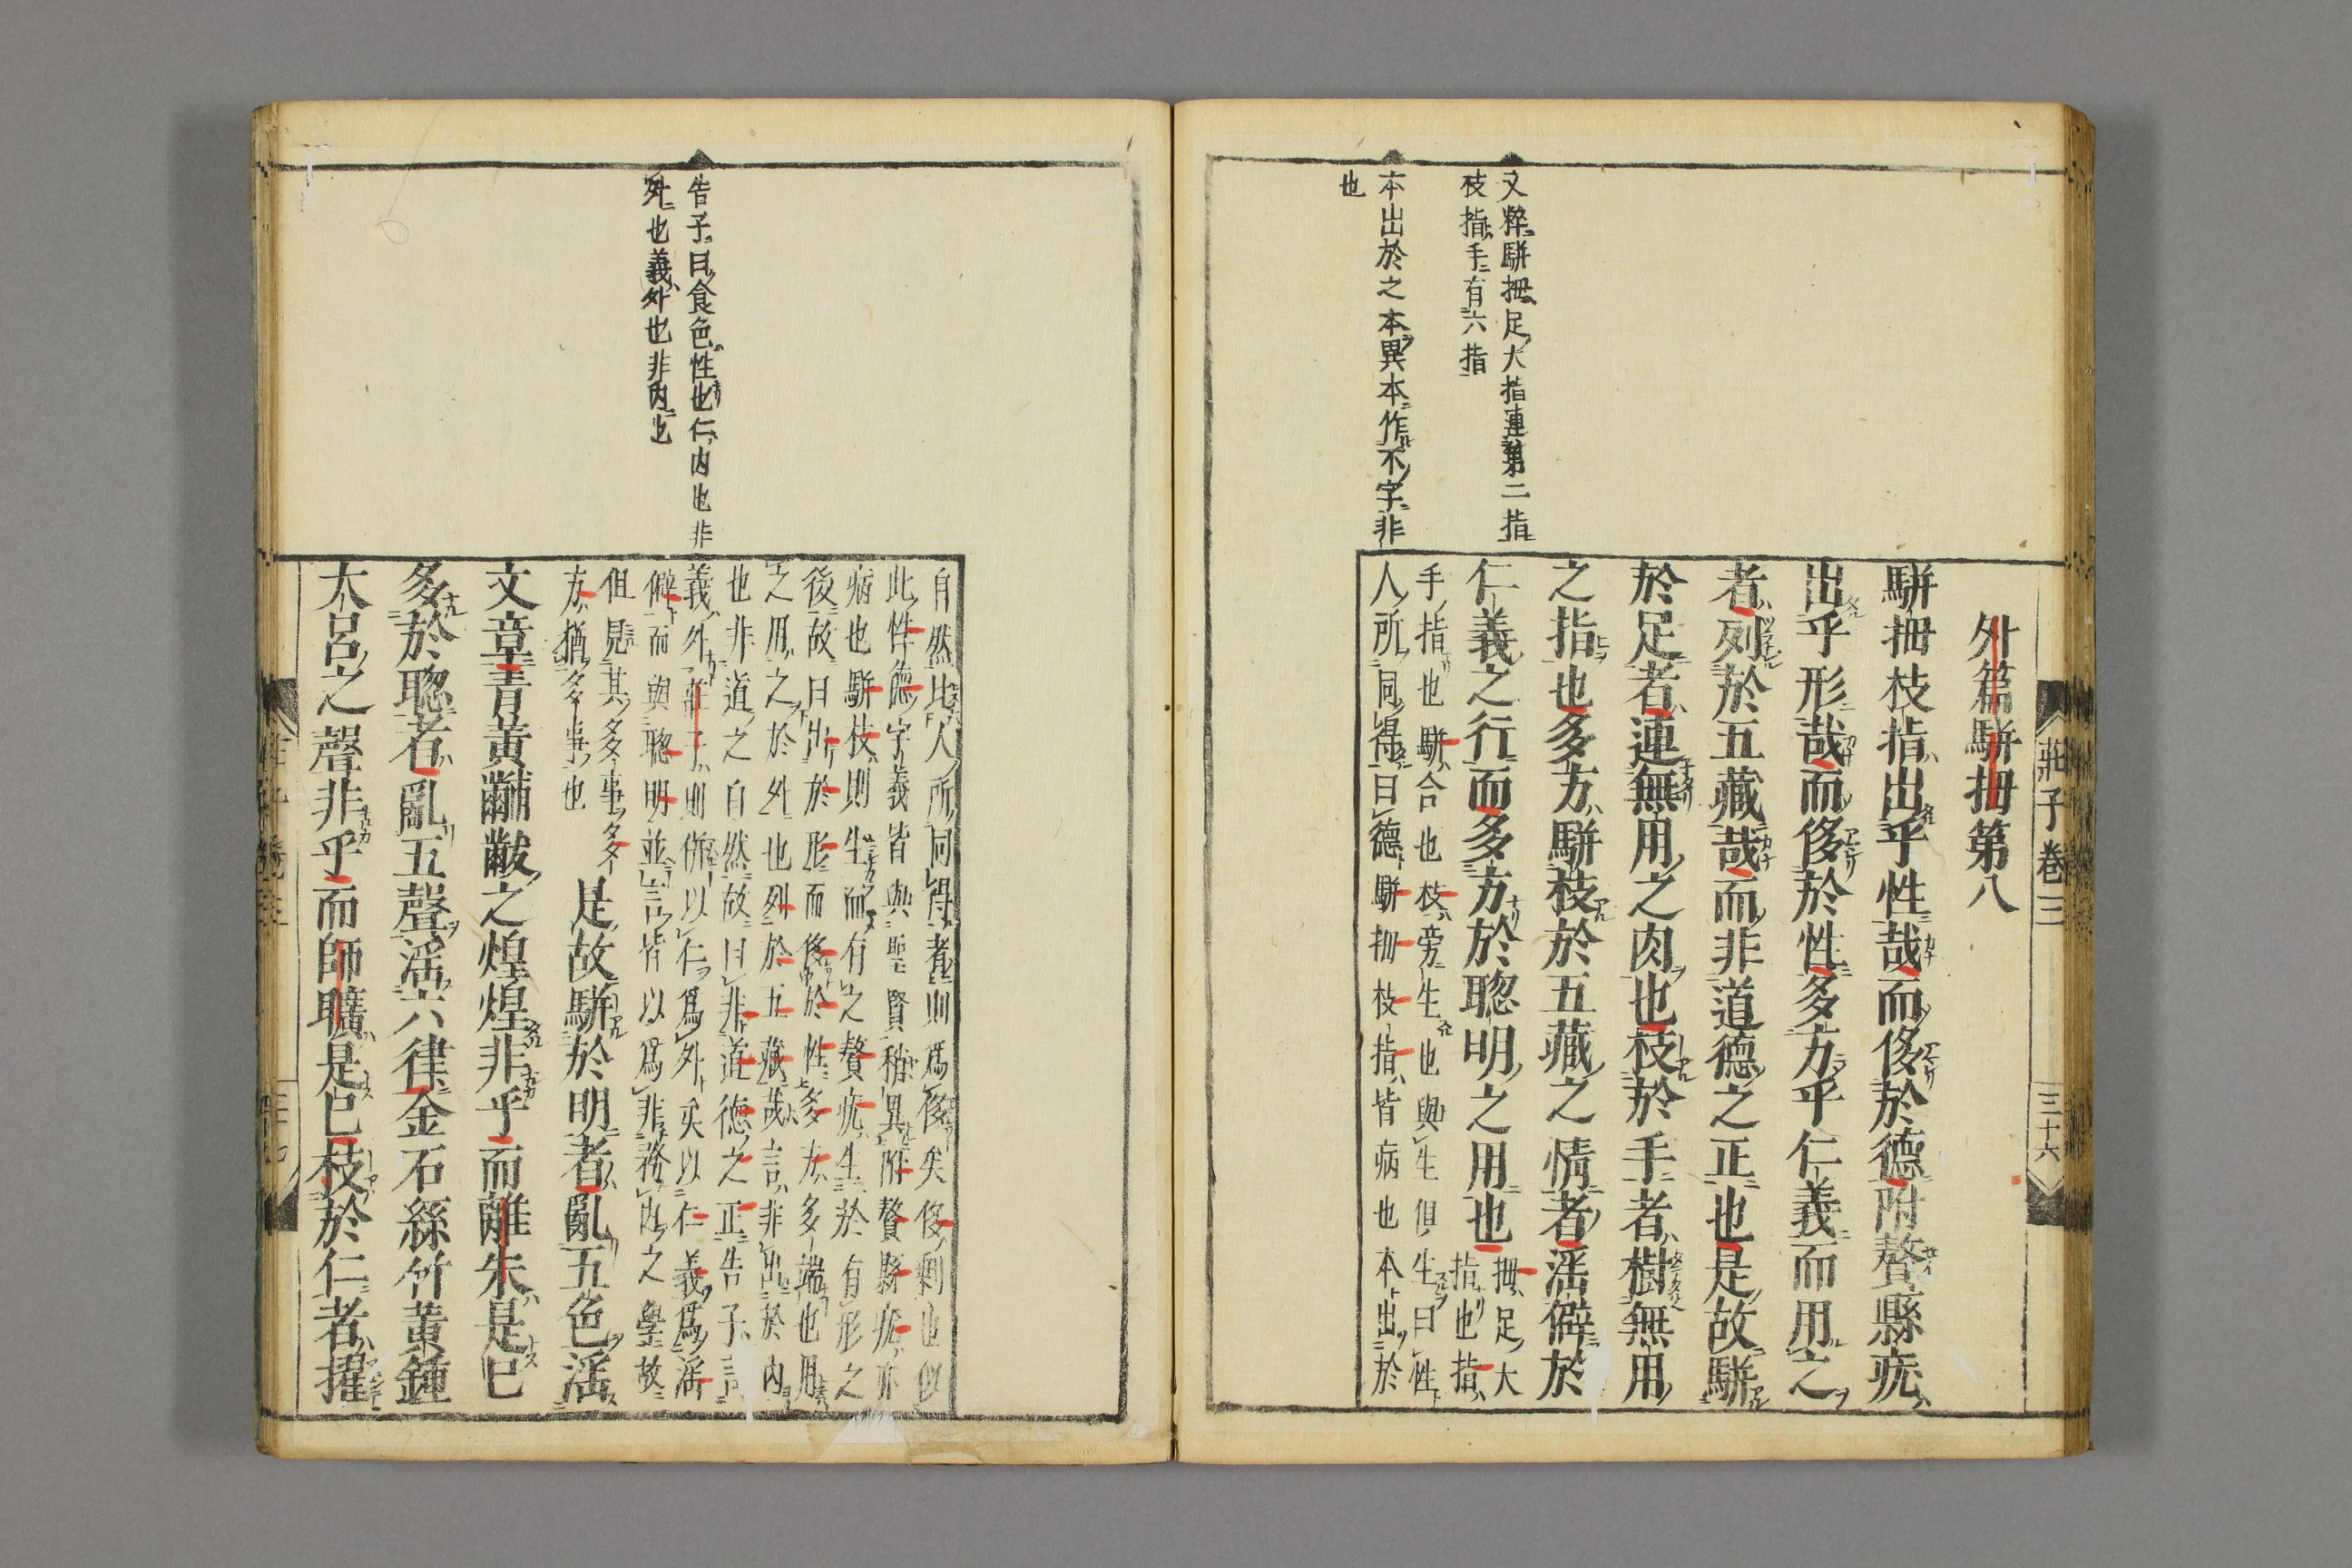 莊子卷三
三十六
外篇駢拇第八
駢拇枝指出乎性哉而侈於德附贅縣疣
出乎形哉而侈於性多方乎仁義而用之
者列於五藏哉而非道德之正也是故駢
於足者連無用之肉也枝於手者樹無用
之指也多方駢枝於五藏之情者滛僻於
仁義之行而多方於聦明之用也
拇足大
指也指
手指也駢合也枝旁生也與生俱生曰性
人所同得曰德駢拇枝指皆病也本出於
又粹駢拇足大指連第二指
枝指手有六指
本出於之本異本作不字非
也
自然比人所同得者則爲侈矣侈剩也似
此性德字義皆與聖賢稍異附贅縣疣亦
病也駢枝則生而有之贅疣生於有形之
後故曰出於形而侈於性多方多端也用
之用之於外也列於五藏哉言非出於內
也非道之自然故曰非道德之正告子言
義外莊子則併以仁爲外矣以仁義爲滛
僻而與聦明並言皆以爲非務內之學故
但見其多事多
方猶多事也
是故駢於明者亂五色滛
文章青黃黼黻之煌煌非乎而離朱是已
多於聦者亂五聲滛六律金石絲竹黃鍾
大呂之聲非乎而師曠是已枝於仁者擢
告子曰食色性也仁內也非
外也義外也非內也